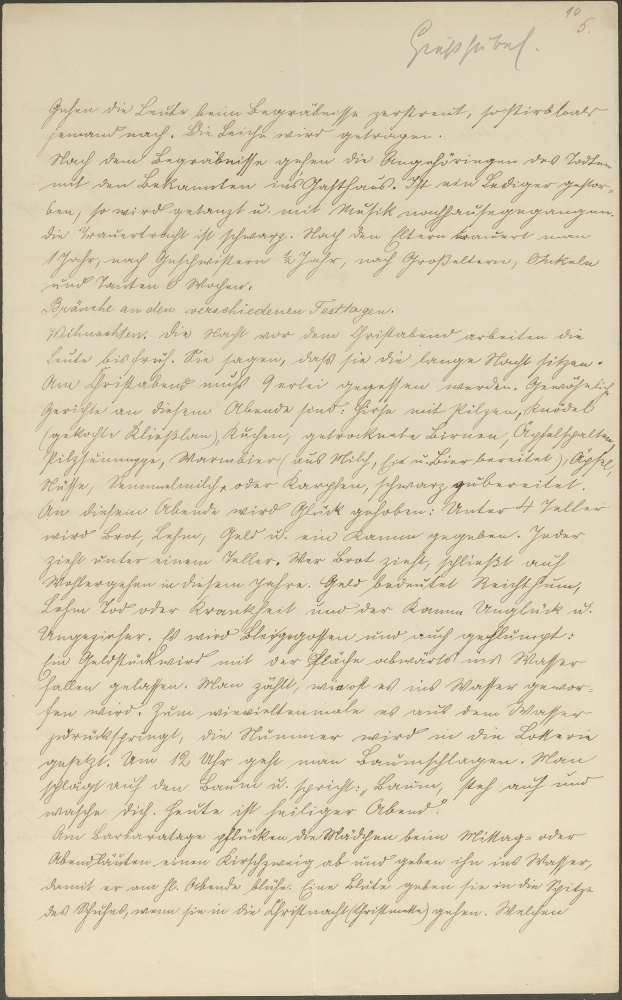 10
5.
Gießhübel.
Gehen die Leute beim Begräbnisse zerstreut, so stirbt bald
jemand nach. Die Leiche wird getragen.
Nach dem Begräbnisse gehen die Angehörigen des Todten
mit den Bekannten ins Gasthaus. Ist ein Lediger gestor-
ben, so wird getanzt u. mit Musik nachhause gegangen.
Die Trauertracht ist schwarz. Nach den Eltern trauert man
1 Jahr, nach Geschwistern ½ Jahr, nach Großeltern, Onkeln
und Tanten 6 Wochen.
Bräuche an den verschiedenen Festtagen.
Weihnachten. Die Nacht vor dem Christabend arbeiten die
Leute bis früh. Sie sagen, daß sie die lange Nacht sitzen.
Am Christabend muß 9erlei gegessen werden. Gewöhnlich
Gerichte an diesem Abende sind: Hirse mit Pilzen, Knödel
(gekochte), Kuchen, getrocknete Birnen, Äpfelspalten
Pilzsuppe, Warmbier (aus Milch, Eier u. Bier bereitet), Äpfel,
Nüsse, Semmelmilch, oder Karpfen, schwarz zubereitet.
An diesem Abende wird Glück gehoben: Unter 4 Teller
wird Brot, Lehm, Geld u. ein Kamm gegeben. Jeder
zieht unter einem Teller. Wer Brot zieht, schließt auf
Wohlergehen in diesem Jahre. Geld bedeutet Reichthum,
Lehm Tod oder Krankheit und der Kamm Unglück u.
Ungeziefer. Es wird Blei gegossen und auch geplumpt:
Ein Geldstück wird mit der Fläche abwärts ins Wasser
fallen gelassen. Man zählt, wie oft es ins Wasser gewor-
fen wird. Zum wievieltenmale es aus dem Wasser
zurückspringt, die Nummer wird in die Lotterie
gesetzt. Um 12 Uhr geht man Baumschlagen. Man
schlägt auf den Baum u. spricht: „Baum, steh auf und
wasche dich. Heute ist heiliger Abend.“
Am Barbaratage pflücken die Mädchen beim Mittag- oder
Abendläuten einen Kirschzweig ab und geben ihn ins Wasser,
damit er am hl. Abende blühe. Eine Blüte geben sie in die Spitze
des Schuhes, wenn sie in die Christnacht (Christmette) gehen. Welchen